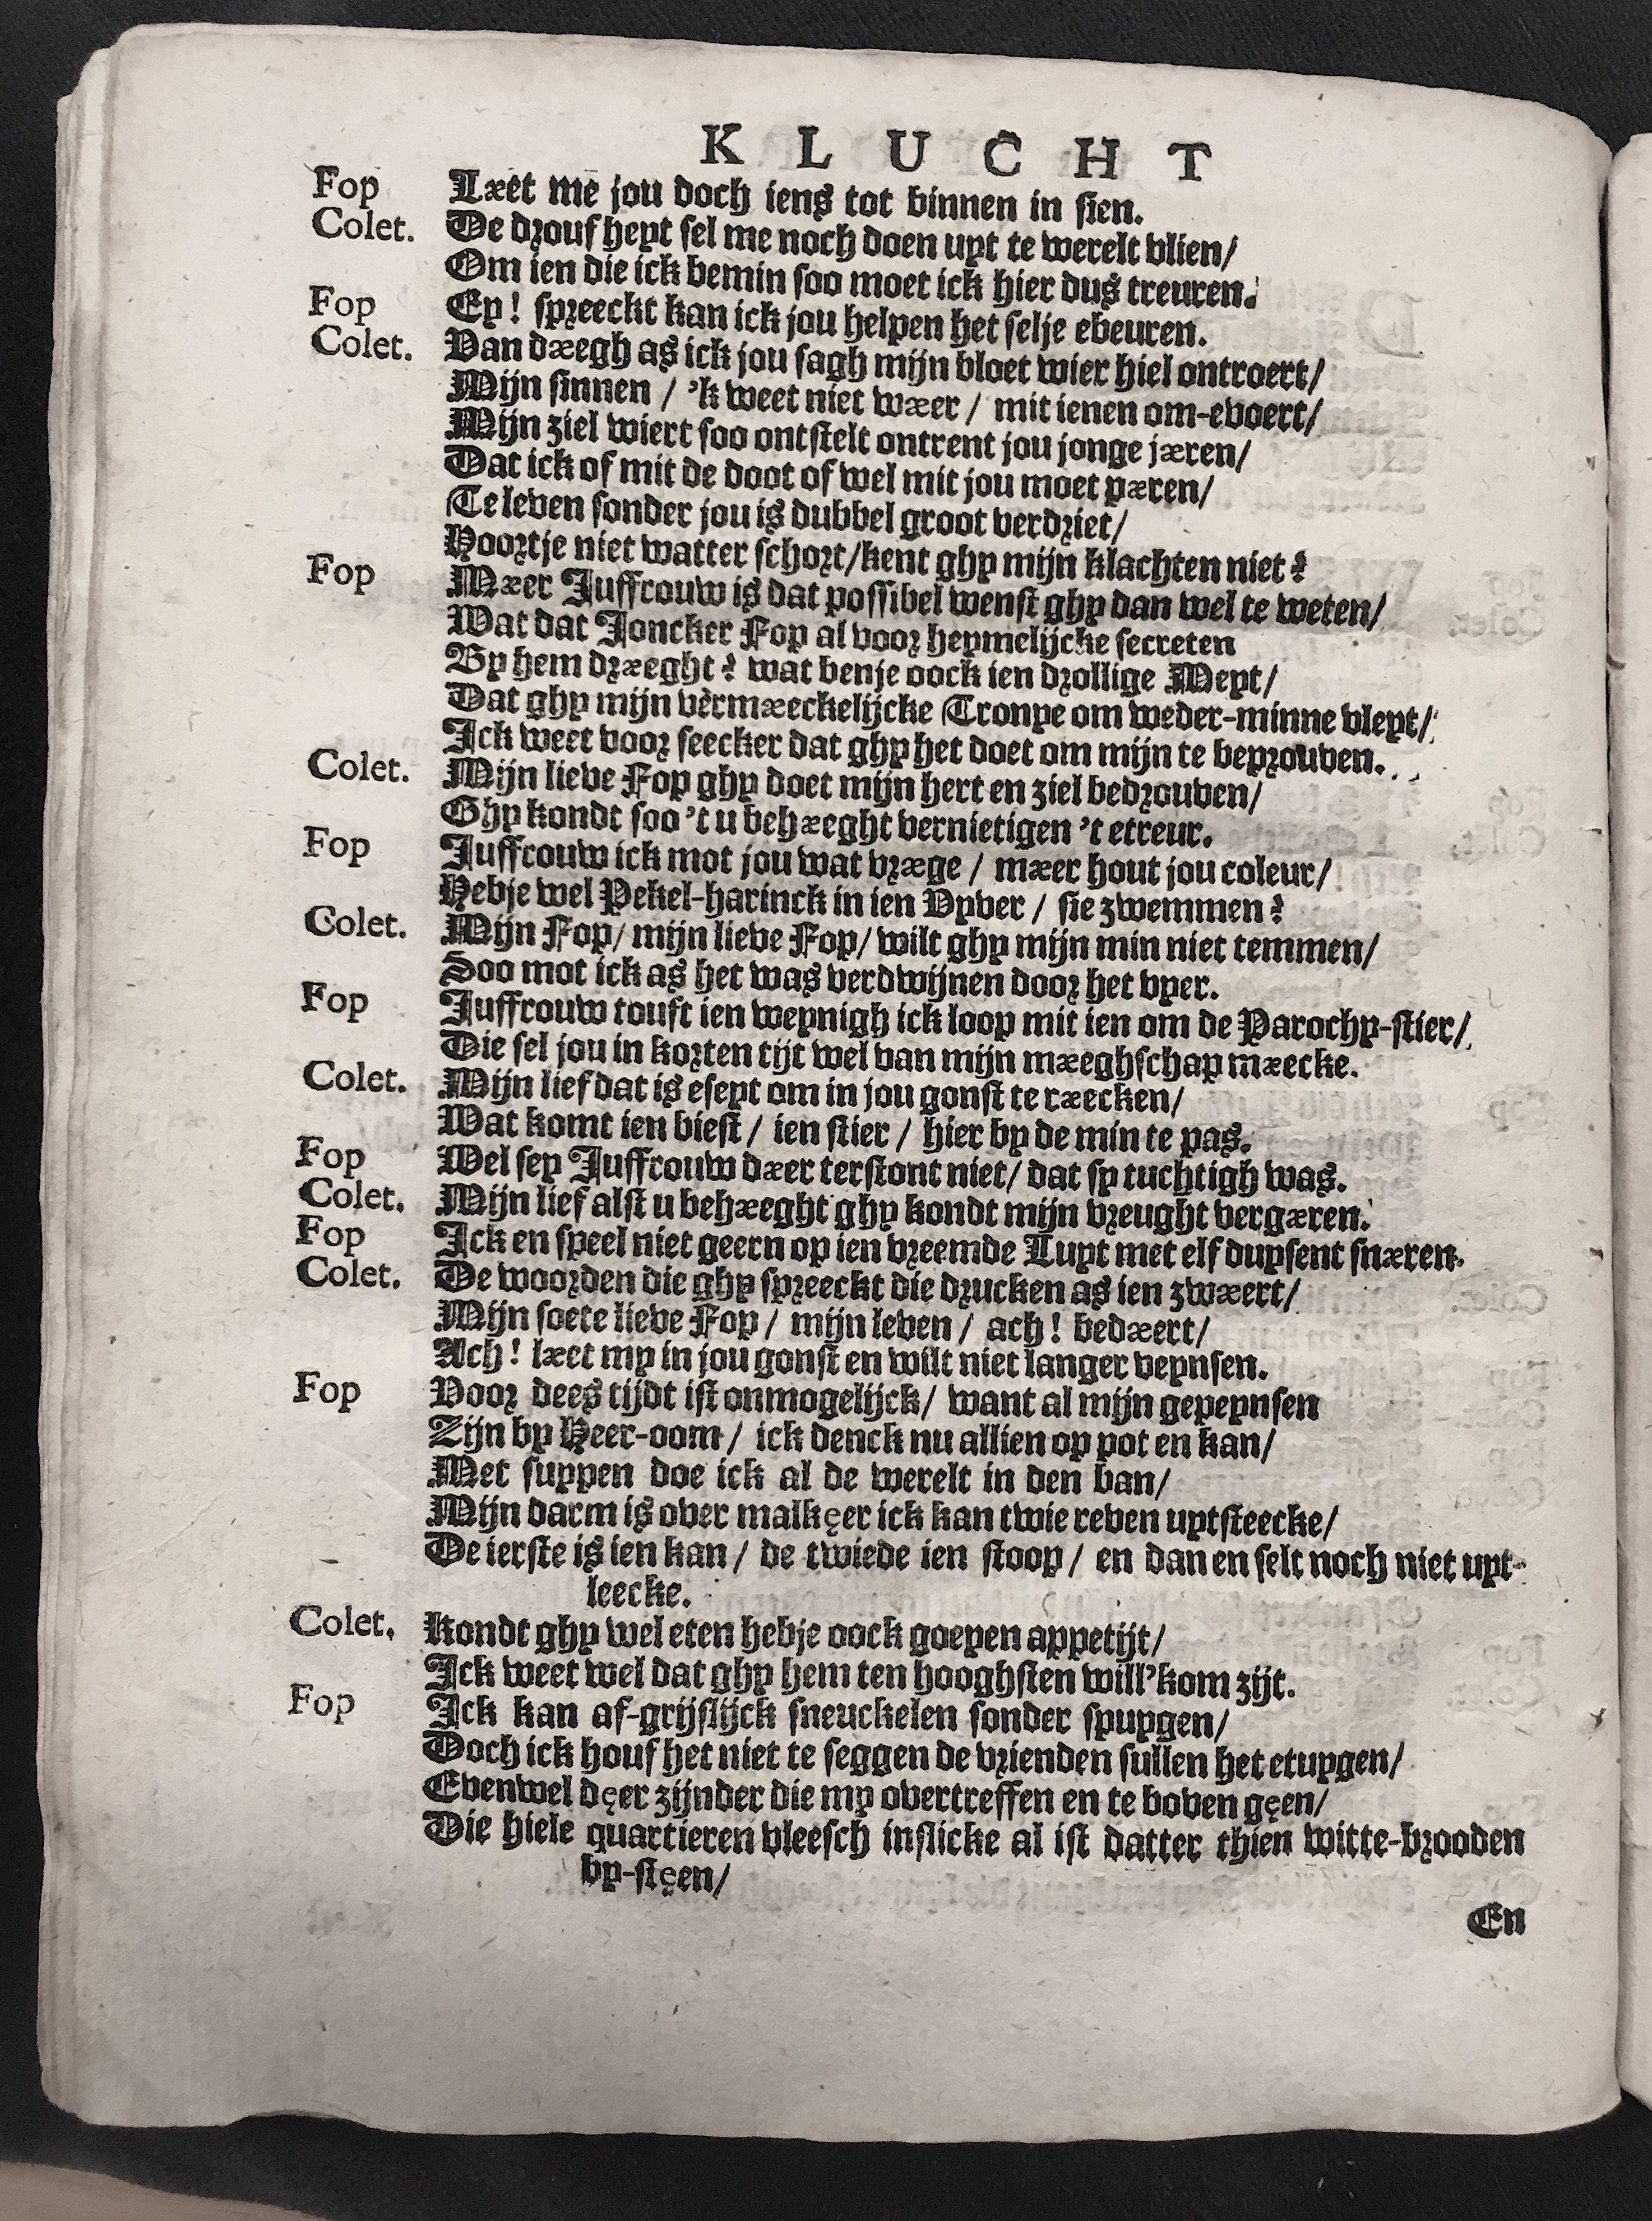 K L U C H T
Fop Læet me jou doch iens tot binnen in sien.
Colet. De drouf heyt sel me noch doen uyt te werelt vlien/
Om ien die ick bemin soo moet ick hier dus treuren.
Fop Ey! spreeckt kan ick jou helpen het selje ebeuren.
Colet. Van dæegh as ick jou sagh mijn bloet wier hiel ontroert/
Mijn sinnen / 'k weet niet wæer / mit ienen om-evoert/
Mijn ziel wiert soo ontstelt ontrent jou jonge jæren/
Dat ick of mit de doot of wel mit jou moet pæren/
Te leven sonder jou is dubbel groot verdriet/
Hoortje niet watter schort/kent ghy mijn klachten niet?
Fop Mæer Juffrouw is dat possibel wenst ghy dan wel te weten/
Wat dat Joncker Fop al voor heymelijcke secreten
By hem dræeght? wat benje oock ien drollige Meyt/
Dat ghy mijn vermæeckelijcke Tronye om weder-minne vleyt/
Ick weet voor seecker dat ghy het doet om mijn te beprouven.
Colet. Mijn lieve Fop ghy doet mijn hert en ziel bedrouven/
Ghy kondt soo 't u behæeght vernietigen 't etreur.
Fop Juffrouw ick mot jou wat vræge / mæer hout jou coleur/
Hebje wel Pekel-harinck in ien Vyver / sie zwemmen?
Colet. Mijn Fop/ mijn lieve Fop/ wilt ghy mijn min niet temmen/
Soo mot ick as het was verdwijnen door het vyer.
Fop Juffrouw touft ien weynigh ick loop mit ien om de Parochy-stier/
Die sel jou in korten tijt wel van mijn mæeghschap mæecke.
Colet. Mijn lief dat is eseyt om in jou gonst te ræecken/
Wat komt ien biest / ien stier / hier by de min te pas.
Fop Wel sey Juffrouw dæer terstont niet/ dat sy tuchtigh was.
Colet. Mijn lief alst u behæeght ghy kondt mijn vreught vergæren.
Fop Ick en speel niet geern op ien vreemde Luyt met elf duysent snæren.
Colet. De woorden die ghy spreeckt die drucken as ien zwæert/
Mijn soete lieve Fop / mijn leven / ach! bedæert/
Ach! læet my in jou gonst en wilt niet langer veynsen.
Fop Voor dees tijdt ist onmogelijck/ want al mijn gepeynsen
Zijn by Heer-oom / ick denck nu allien op pot en kan/
Met suypen doe ick al de werelt in den ban/
Mijn darm is over malkęer ick kan twie reven uytsteecke/
De ierste is ien kan / de twiede ien stoop / en dan en selt noch niet uyt-
leecke.
Colet. Kondt ghy wel eten hebje oock goeyen appetijt/
Ick weet wel dat ghy hem ten hooghsten will'kom zijt.
Fop Ick kan af-grijslijck sneuckelen sonder spuygen/
Doch ick houf het niet te seggen de vrienden sullen het etuygen/
Evenwel dęer zijnder die my overtreffen en te boven gęen/
Die hiele quartieren vleesch inslicke al ist datter thien witte-brooden
by-stęen/
En